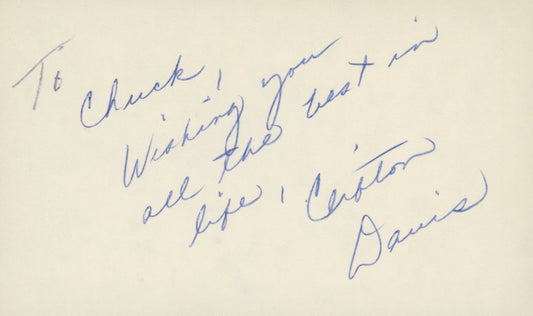 To Chuck,
Wishing you
all the best in
life, Clifton
Davis